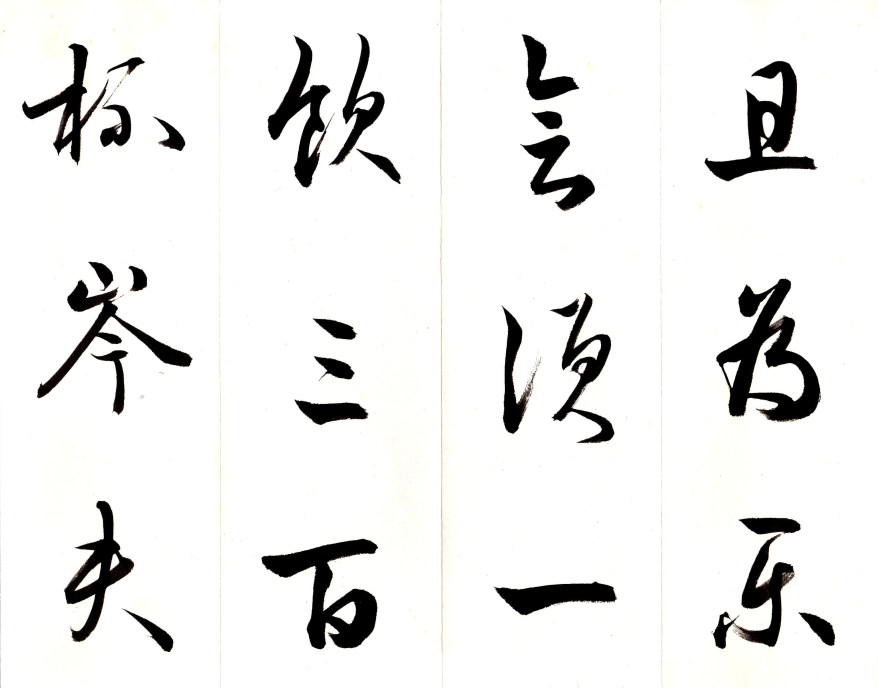 且为乐
会须一
饮三百
杯岑夫